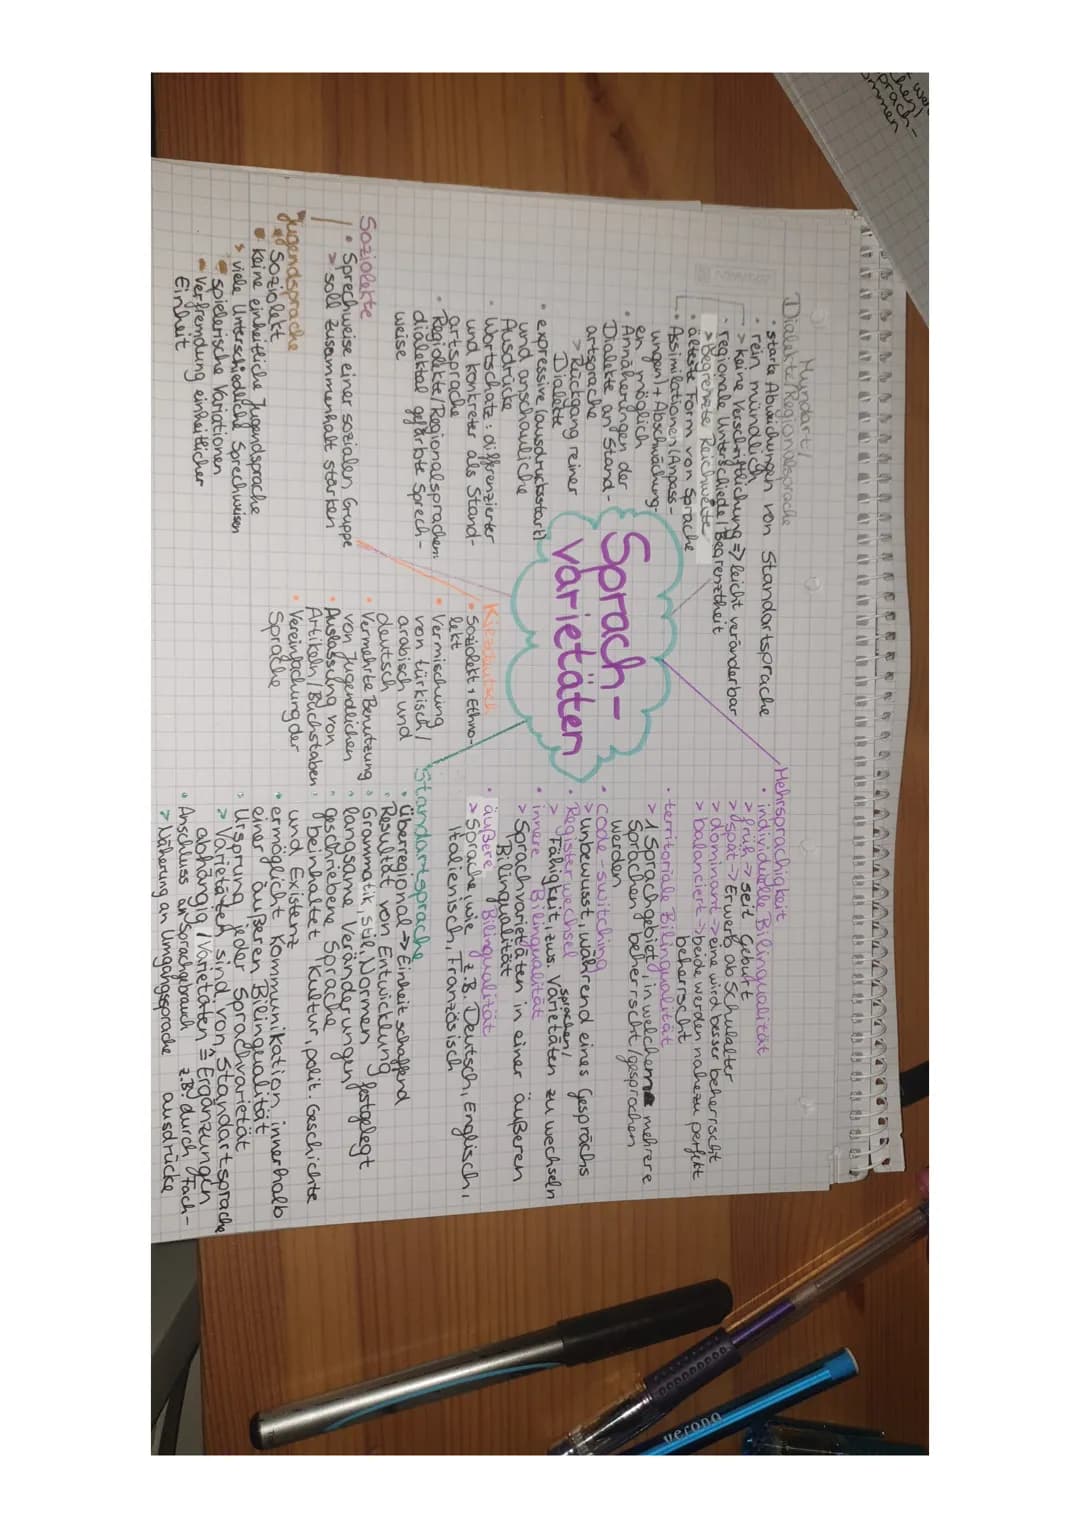 Sprach-
varietäten
Mundart/
Dialekte/Regionalsprache
• starke Abweichungen von Standartsprache
• rein mündlich
> keine Verschriftlichung => leicht veränderbar
• regionale Unterschiede/Begrenztheit
> begrenzte Reichweite
• älteste Form von Sprache
• Assimilationen (Anpass-
ungen) + Abschwächung-
en möglich
• Annäherungen der
Dialekte an Stand-
artsprache
> Rückgang reiner
Dialekte
• expressive (ausdrucksstark)
und anschauliche
Ausdrücke
• Wortschatz: differenzierter
und konkreter als Stand-
artsprache
• Regiolekte/Regionalsprachen:
dialektal gefärbte Sprech-
weise
Soziolekte
• Sprechweise einer sozialen Gruppe
> soll Zusammenhalt stärken
Jugendsprache
• Soziolekt
• keine einheitliche Jugendsprache
> viele Unterschiedliche Sprechweisen
• spielerische Variationen
• Verfremdung einheitlicher
Einheit
Kiezdeutsch
• Soziolekt + Ethno-
lekt
• Vermischung
von türkisch/
arabisch und
deutsch
• Vermehrte Benutzung
von Jugendlichen
• Auslassung von
Artikeln/Buchstaben
• Vereinfachung der
Sprache
Mehrsprachigkeit
• individuelle Bilingualität
> früh -> seit Geburt
> spät -> Erwerb ab Schulalter
> dominant -> eine wird besser beherrscht
> balanciert -> beide werden nahezu perfekt
beherrscht
• territoriale Bilingualität
> 1 Sprachgebiet, in welchem mehrere
Sprachen beherrscht/gesprochen
werden
• Code-switching
> unbewusst, während eines Gesprächs
• Registerwechsel
> Fähigkeit, zws. Sprachen/Varietäten zu wechseln
• innere Bilingualität
> Sprachvarietäten in einer äußeren
Bilingualität
• äußere Bilingualität
> Sprache, wie z.B. Deutsch, Englisch,
Italienisch, Französisch
Standartsprache
• Überregional => Einheit schaffend
• Resultat von Entwicklung
• Grammatik, Stil, Normen festgelegt
• langsame Veränderungen
• geschriebene Sprache
• beinhaltet Kultur, polit. Geschichte
und Existenz
• ermöglicht Kommunikation innerhalb
einer äußeren Bilingualität
• Ursprung jeder Sprachvarietät
> Varietäten sind von Standartsprache
abhängig/Varietäten ≙ Ergänzungen
• Anschluss an Sprachgebrauch z.B. durch Fach-
ausdrücke
> Näherung an Umgangssprache
verona